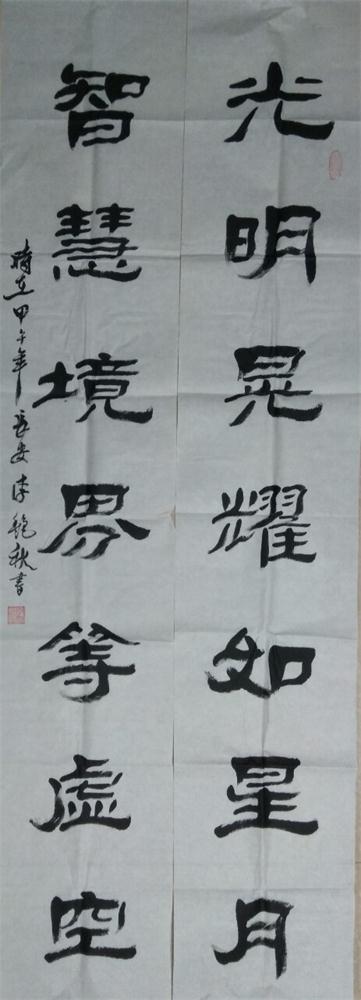 光明晃耀如星月
智慧境界等虚空
時在甲午年長安李艳秋書